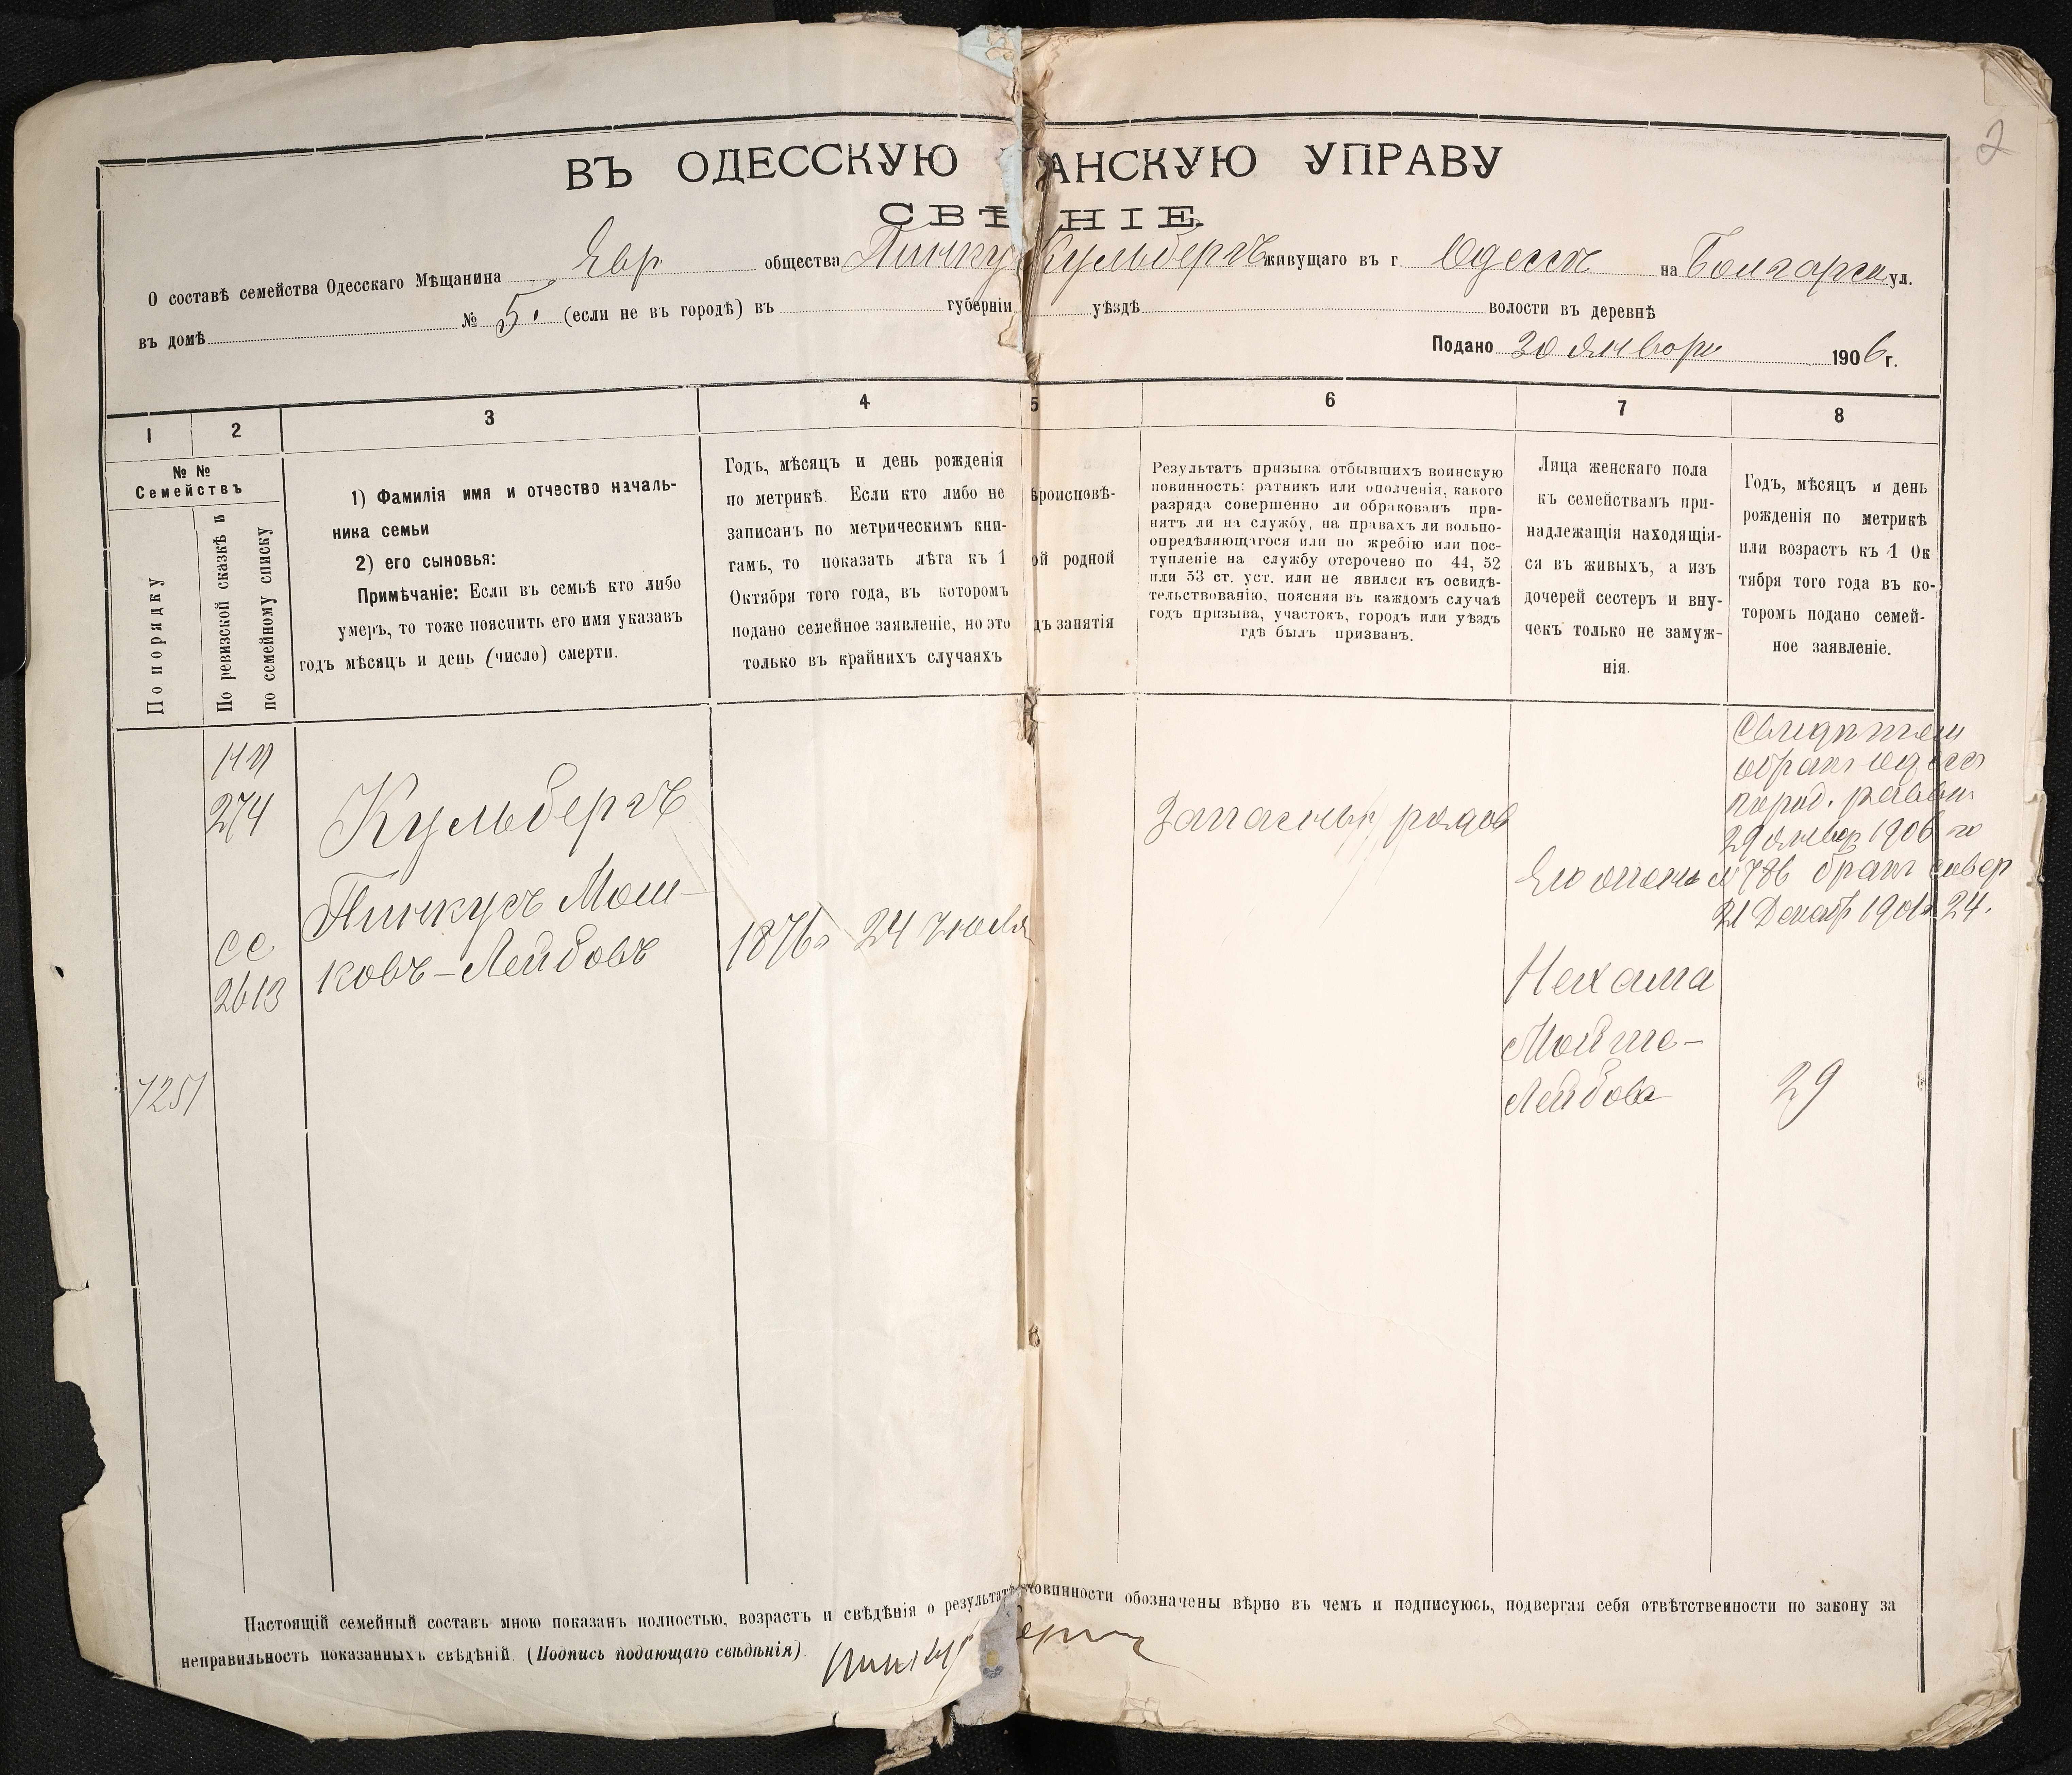 2
ВЪ ОДЕССКУЮ АНСКУЮ УПРАВУ
СВѢ НІЕ.
О составѣ семейства Одесскаго Мѣщанина Евр общества Пинку Кульбергъ живущаго въ г. Одессѣ на Болгарск ул.
въ домѣ № 5. (если не въ городѣ) въ губерніи уѣздѣ волости въ деревнѣ
Подано 30 Января 1906 г.
1
2
3
4
5
6
7
8
№ №
Семействъ
По порядку
По ревизской сказкѣ и
по семейному списку
1) Фамилія имя и отчество началь-
ника семьи
2) его сыновья:
Примѣчаніе: Если въ семьѣ кто либо
умеръ, то тоже пояснить его имя указавъ
годъ мѣсяцъ и день (число) смерти.
Годъ, мѣсяцъ и день рожденія
по метрикѣ. Если кто либо не
записанъ по метрическимъ кни-
гамъ, то показать лѣта къ 1
Октября того года, въ которомъ
подано семейное заявленіе, но это
только въ крайнихъ случаяхъ
ѣроисповѣ-
ой родной
дъ занятія
Результатъ призыва отбывшихъ воинскую
повинность: ратникъ или ополченія, какого
разряда совершенно ли обракованъ при-
нятъ ли на службу, на правахъ ли вольно-
опредѣляющагося или по жребію или пос-
тупленіе на службу отсрочено по 44, 52
или 53 ст. уст. или не явился къ освидѣ-
тельствованію, поясняя въ каждомъ случаѣ
годъ призыва, участокъ, городъ или уѣздъ
гдѣ былъ призванъ.
Лица женскаго пола
къ семействамъ при-
надлежащія находящія-
ся въ живыхъ, а изъ
дочерей сестеръ и вну-
чекъ только не замуж-
нія.
Годъ, мѣсяцъ и день
рожденія по метрикѣ
или возрастъ къ 1 Ок
тября того года въ ко-
торомъ подано семей-
ное заявленіе.
274
сс
2613
7251
Кульбергъ
Пинкусъ Мош-
ковъ-Лейбовъ
1876г 24 Іюля
Запасный рядов
Нехама
Мойше-
Лейбова
29 Январ 1906 го
№ 786 бракъ совер
21 Декабр 1901г 24.
29
Настоящій семейный составъ мною показанъ полностью, возрастъ и свѣдѣнія о результатѣ повинности обозначены вѣрно въ чемъ и подписуюсь, подвергая себя отвѣтственности по закону за
неправильность показанныхъ свѣдѣній. (Подпись подающаго свѣдѣнія).